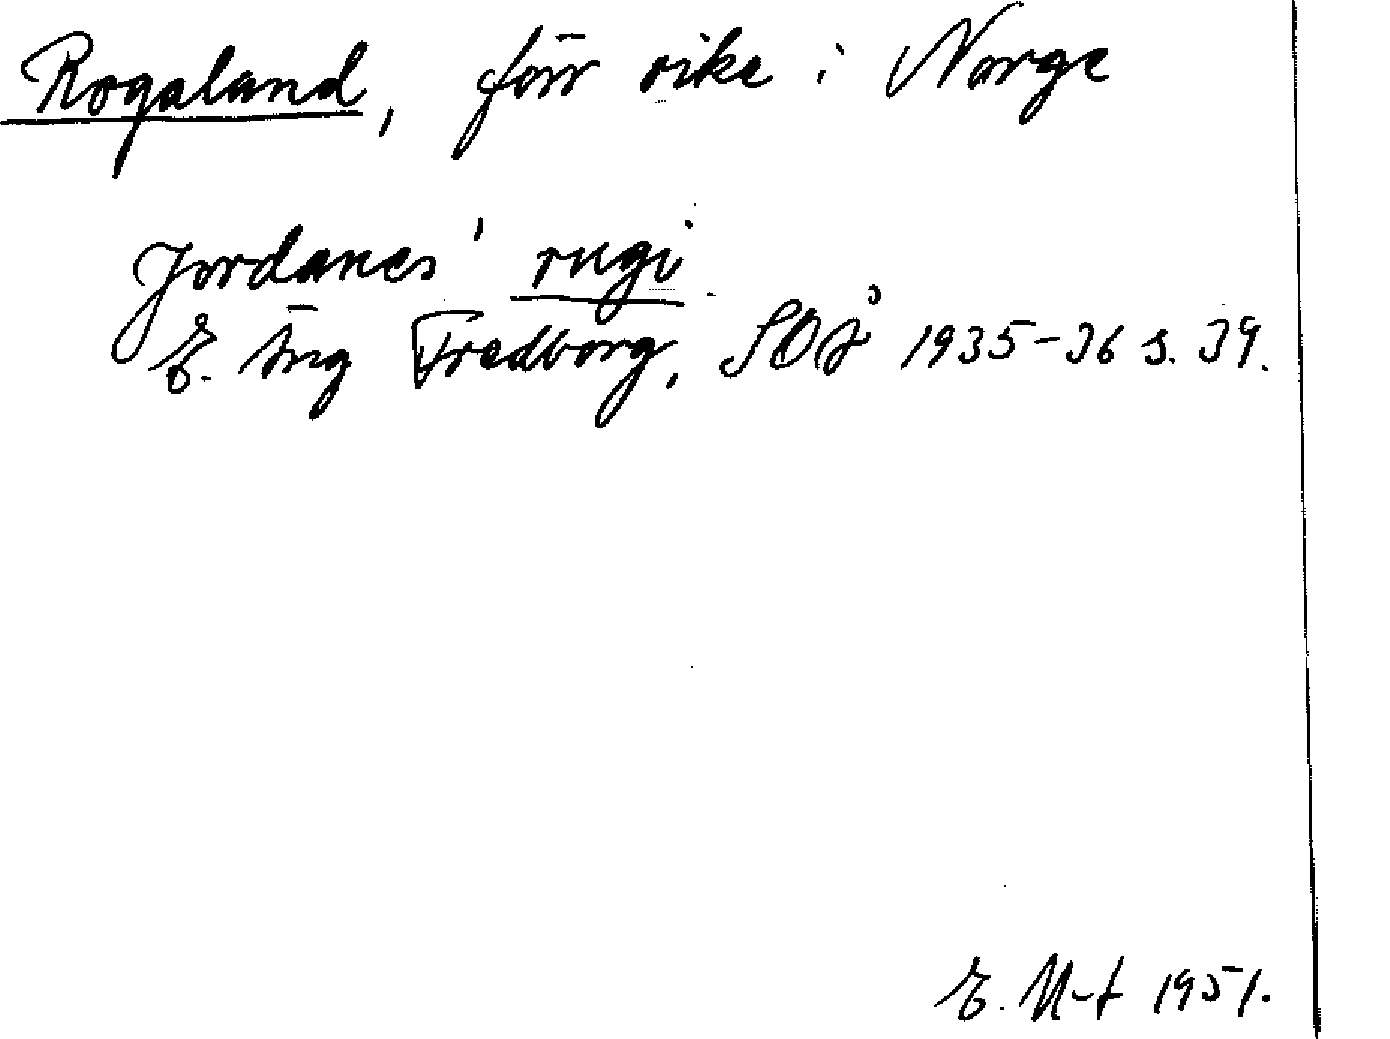 Rogaland, förr rike i Norge
Jordanes' rugi
E. Äng Fredborg, SOÅ 1935-36 s. 39.
E. N-t 1951.